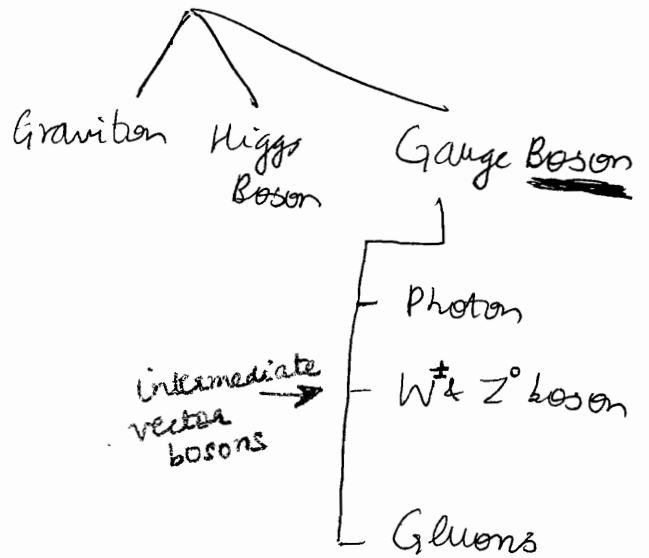 Graviton
Higgs
Boson
Gauge Boson
Photon
intermediate
vector
bosons
W± & Z° boson
Gluons